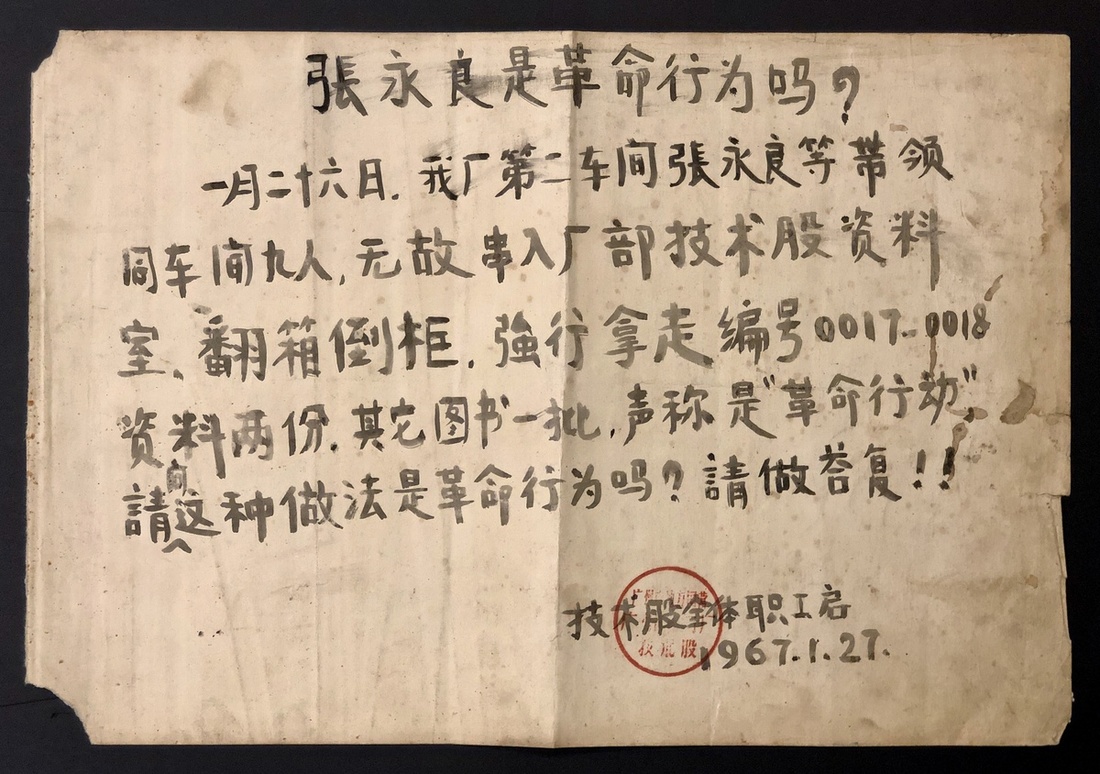 張永良是革命行为吗?
一月二十六日.我厂第二车间張永良等带领
同车间九人,无故串入厂部技术股资料
室、翻箱倒柜.強行拿走编号0017-0018
资料两份.其它图书一批.声称是"革命行动",
請问这种做法是革命行为吗?請做答复!!
技术股全体职工启
1967.1.27.